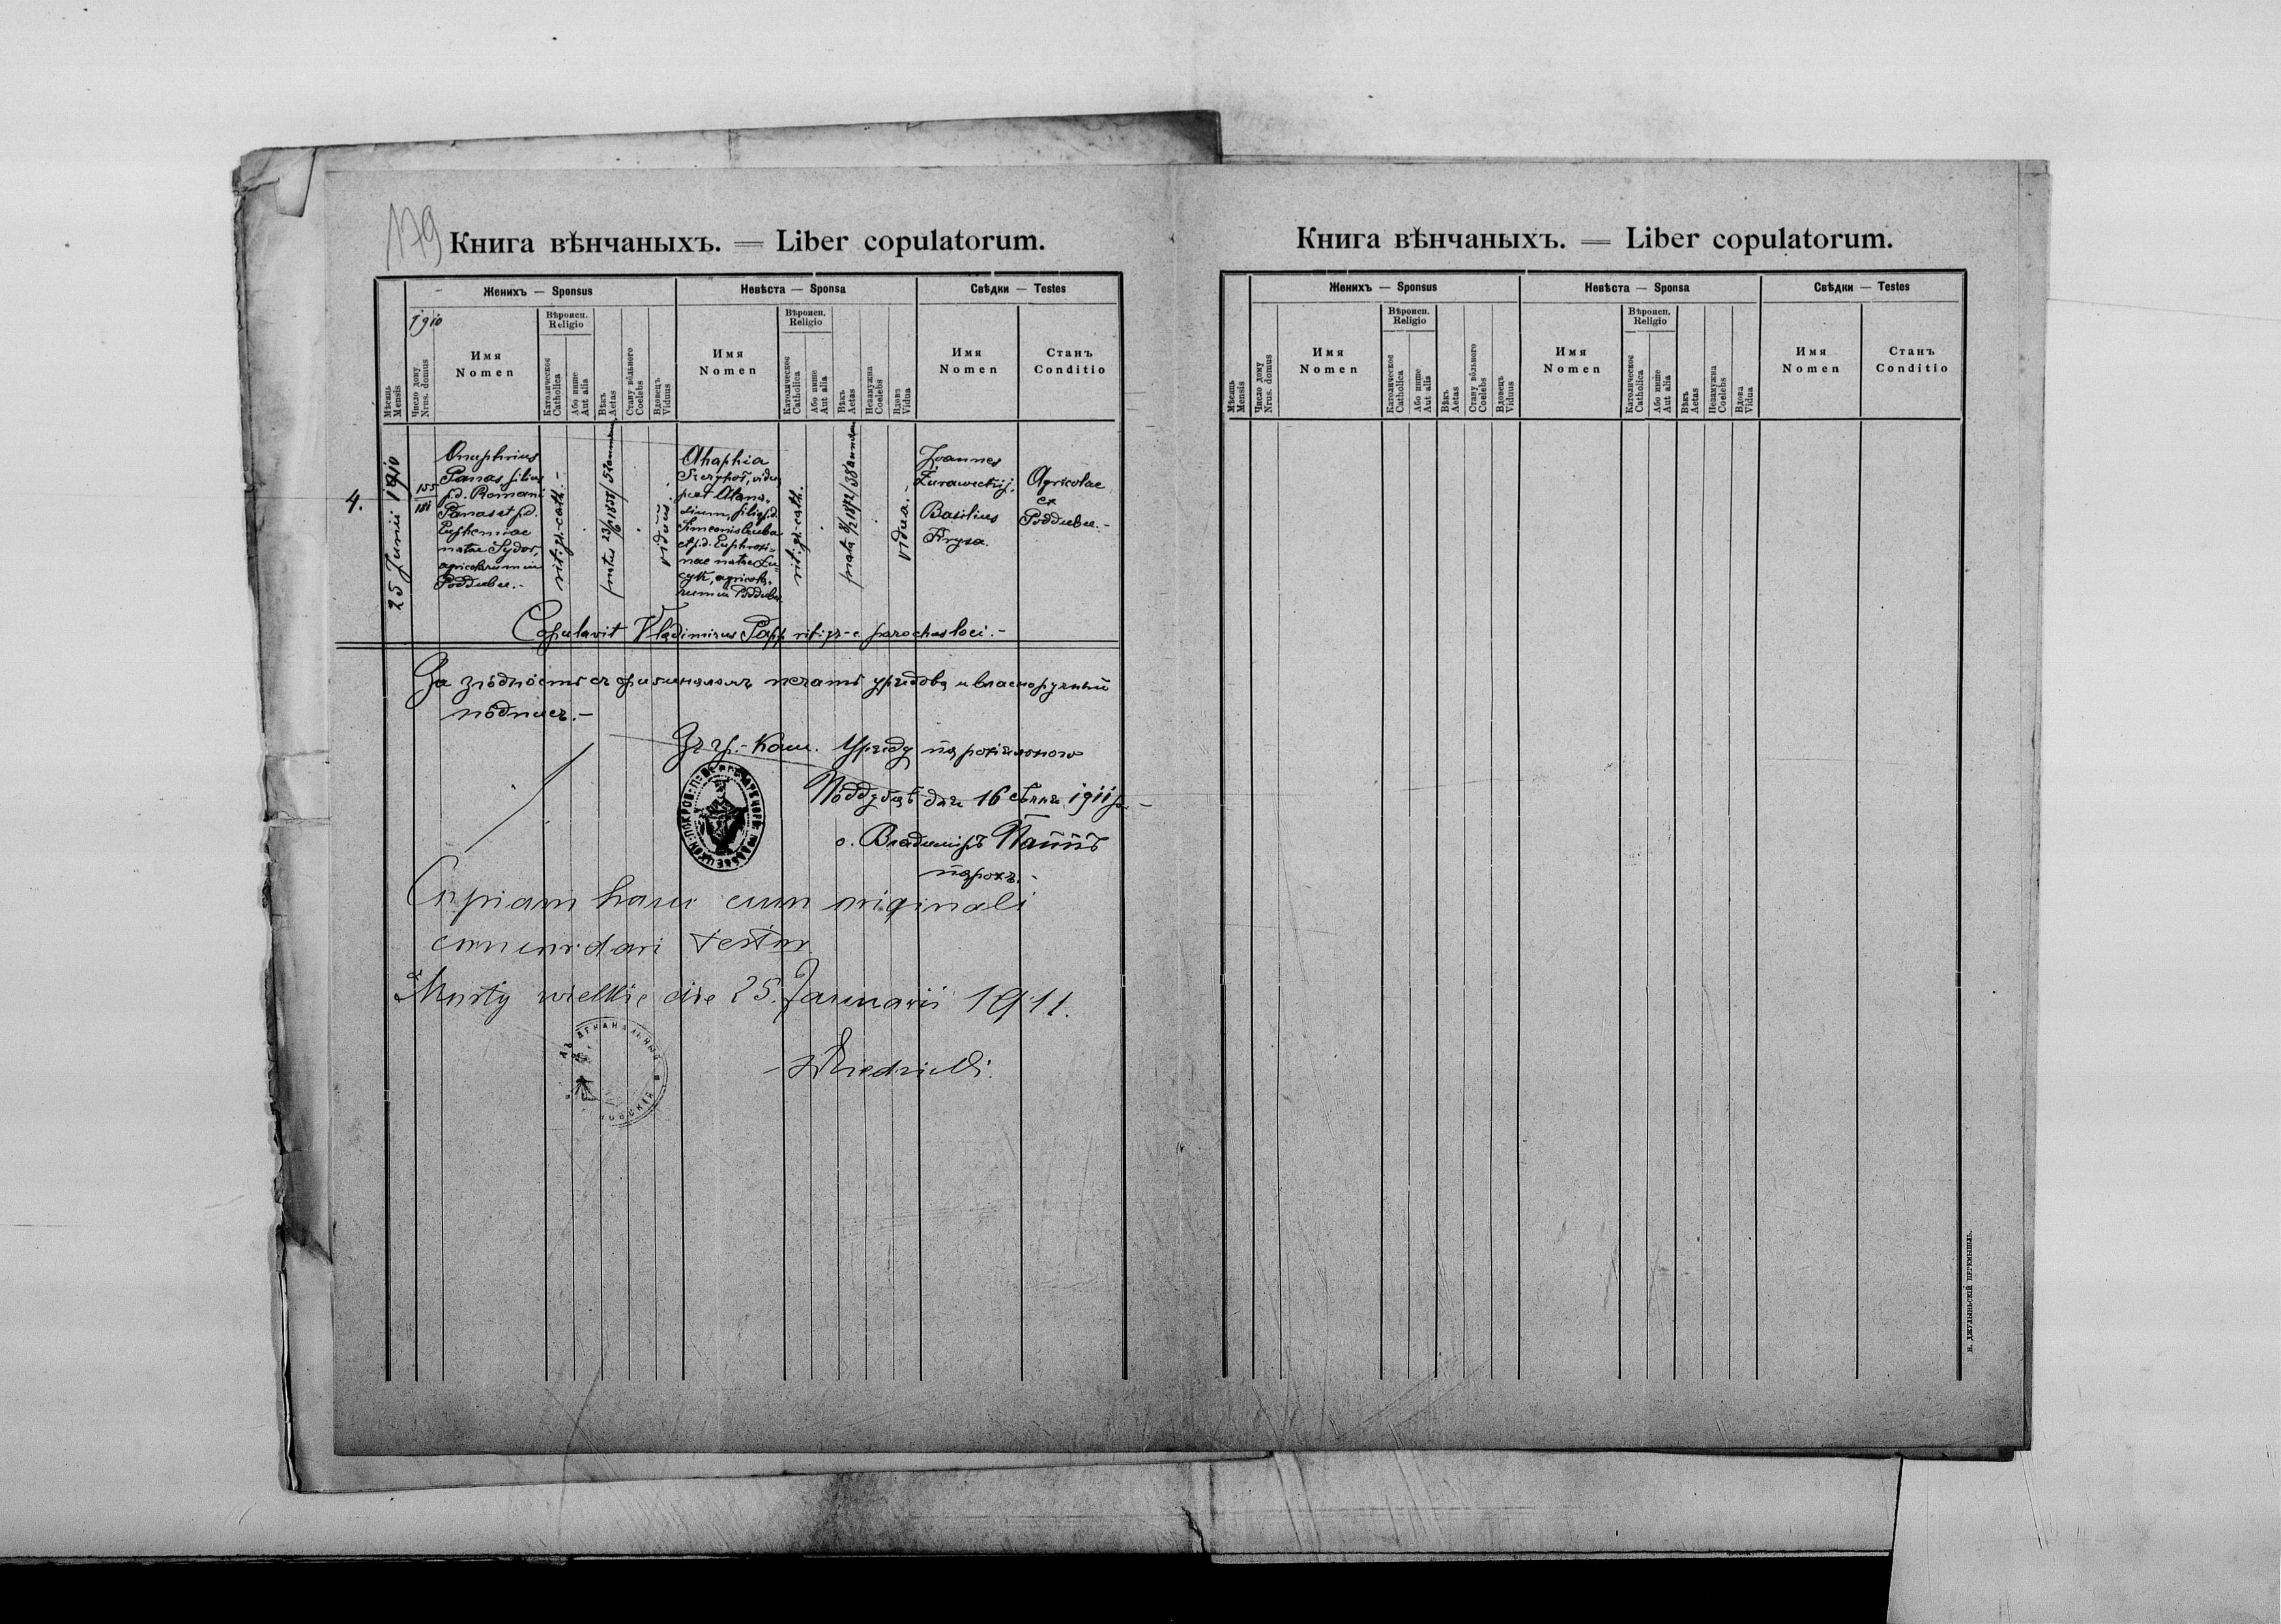 179
Книга вѣнчаныхъ. — Liber copulatorum.
Женихъ — Sponsus
Невѣста — Sponsa
Свѣдки — Testes
1910
Мѣсяць Mensis
Число дому Nrus. domus
Имя Nomen
Вѣроисп. Religio
Католическое Catholica
Або инше Aut alia
Вѣкъ Aetas
Стану вôльного Coelebs
Вдовецъ Viduus
Имя Nomen
Вѣроисп. Religio
Католическое Catholica
Або инше Aut alia
Вѣкъ Aetas
Незамужна Coelebs
Вдова Vidua
Имя Nomen
Станъ Conditio
4.
25 Junii 1910
155
181
Onuphrius
Panas, filius
p.d. Romani
Panas et p.d.
Euphemiae
natae Sydor,
agricolarum in
Poddubce.-
rit. gr.-cath.-
viduus.
Ahaphia
vidua
post Atana-
sium, filia p.d.
Simeonis
et p.d. Euphrosi-
nae natae Lu-
cyk, agricola-
rum in Poddubce
rit. gr.-cath.
vidua.-
Joannes
Żuraweckij,
Basilius
Krysa.
Agricolae
ex
Poddubce.-
Copulavit Vladimirus Papp rit. gr.-c. parochus loci.-
За згôднôсть съ оригиналомъ печать урядова и власноручный
пôдпись.-
Зъ гр.-кат. Уряду парохіяльного
Пôддубцѣ дня 16 сѣчня 1911 р.-
о. Владимиръ Паппъ
парохъ.-
Copiam hanc cum originali
concordari testor
Mosty wielkie die 25. Januarii 1911.
Книга вѣнчаныхъ. — Liber copulatorum.
Женихъ — Sponsus
Невѣста — Sponsa
Свѣдки — Testes
Мѣсяць Mensis
Число дому Nrus. domus
Имя Nomen
Вѣроисп. Religio
Католическое Catholica
Або инше Aut alia
Вѣкъ Aetas
Стану вôльного Coelebs
Вдовецъ Viduus
Имя Nomen
Вѣроисп. Religio
Католическое Catholica
Або инше Aut alia
Вѣкъ Aetas
Незамужна Coelebs
Вдова Vidua
Имя Nomen
Станъ Conditio
Н. ДЖУЛЫНЬСКІЙ ПЕРЕМЫШЛЬ.